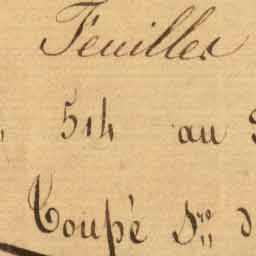 Feuilles
514 au
Coupé Sre